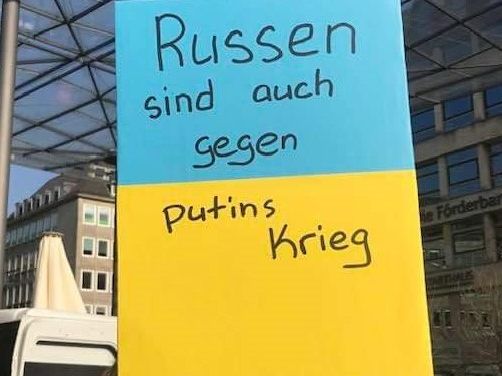 Russen
sind auch
gegen
Putins
Krieg
Förderba